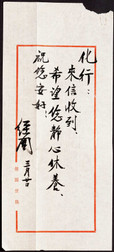 化行：
来信收到
希望您静心休养、
祝您安好！
三月廿